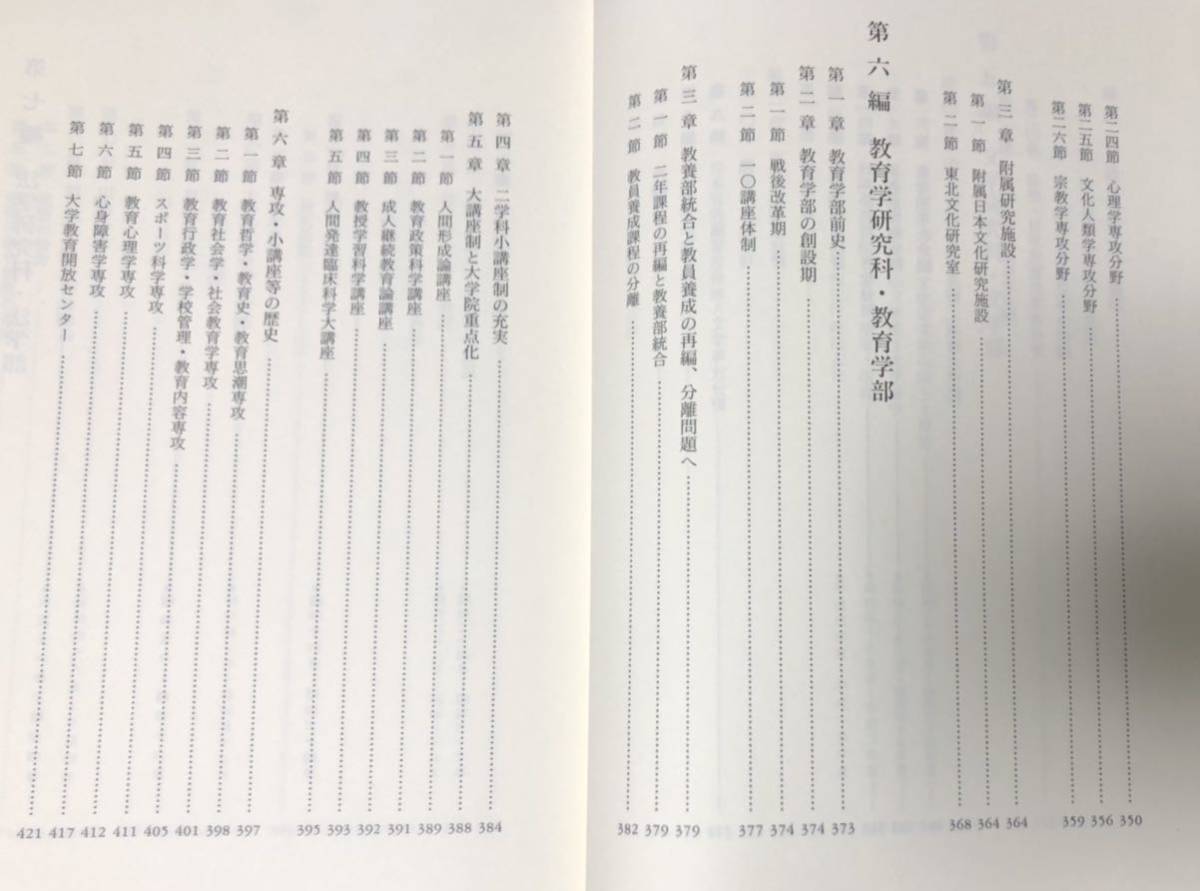 第二四節 心理学専攻分野 350
第二五節 文化人類学専攻分野 356
第二六節 宗教学専攻分野 359
第三章 附属研究施設 364
第一節 附属日本文化研究施設 364
第二節 東北文化研究室 368
第六編 教育学研究科・教育学部
第一章 教育学部前史 373
第二章 教育学部の創設期 374
第一節 戦後改革期 374
第二節 一〇講座体制 377
第三章 教養部統合と教員養成の再編、分離問題へ 379
第一節 二年課程の再編と教養部統合 379
第二節 教員養成課程の分離 382
第四章 二学科小講座制の充実 384
第五章 大講座制と大学院重点化 388
第一節 人間形成論講座 389
第二節 教育政策科学講座 391
第三節 成人継続教育論講座 392
第四節 教授学習科学講座 393
第五節 人間発達臨床科学大講座 395
第六章 専攻・小講座等の歴史 397
第一節 教育哲学・教育史・教育思潮専攻 398
第二節 教育社会学・社会教育学専攻 401
第三節 教育行政学・学校管理・教育内容専攻 405
第四節 スポーツ科学専攻 411
第五節 教育心理学専攻 412
第六節 心身障害学専攻 417
第七節 大学教育開放センター 421